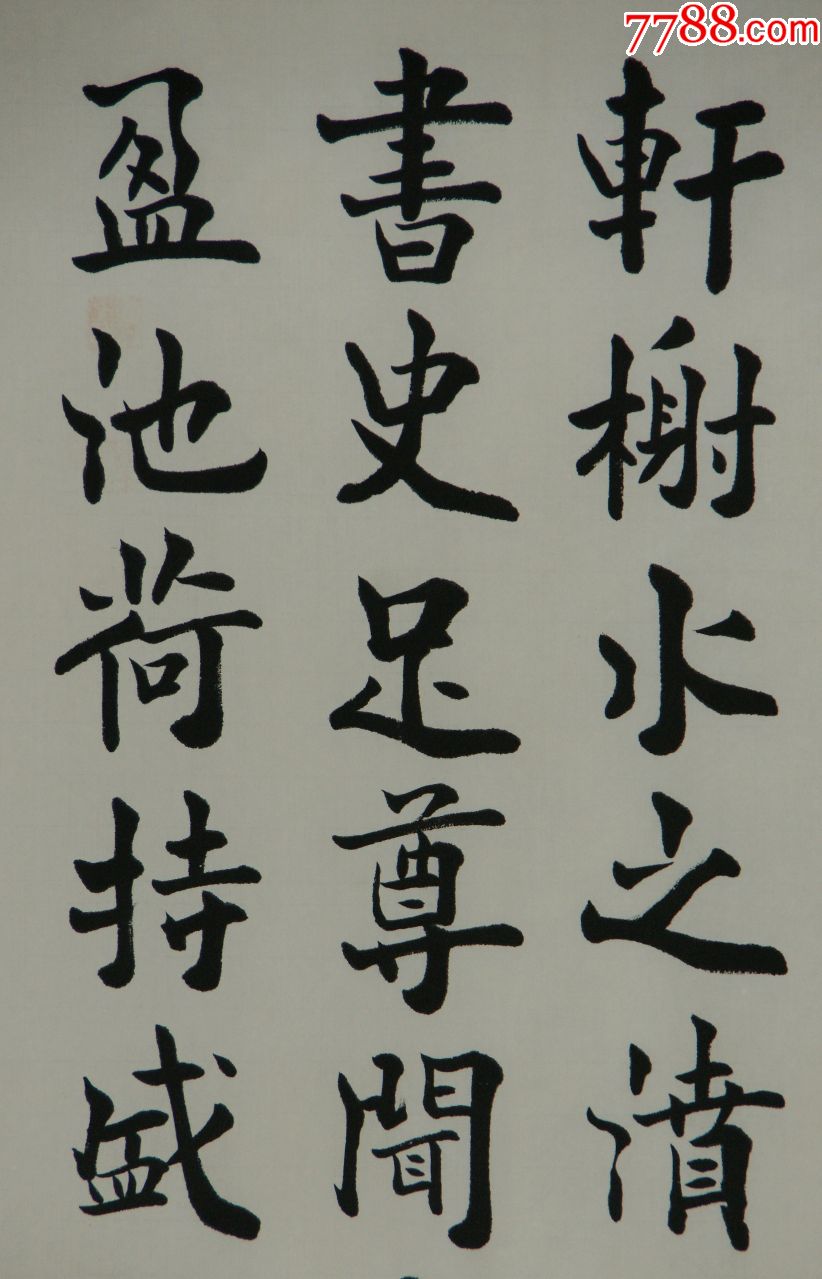 7788.com
軒榭水之濆
書史足尊聞
盈池荷持盛